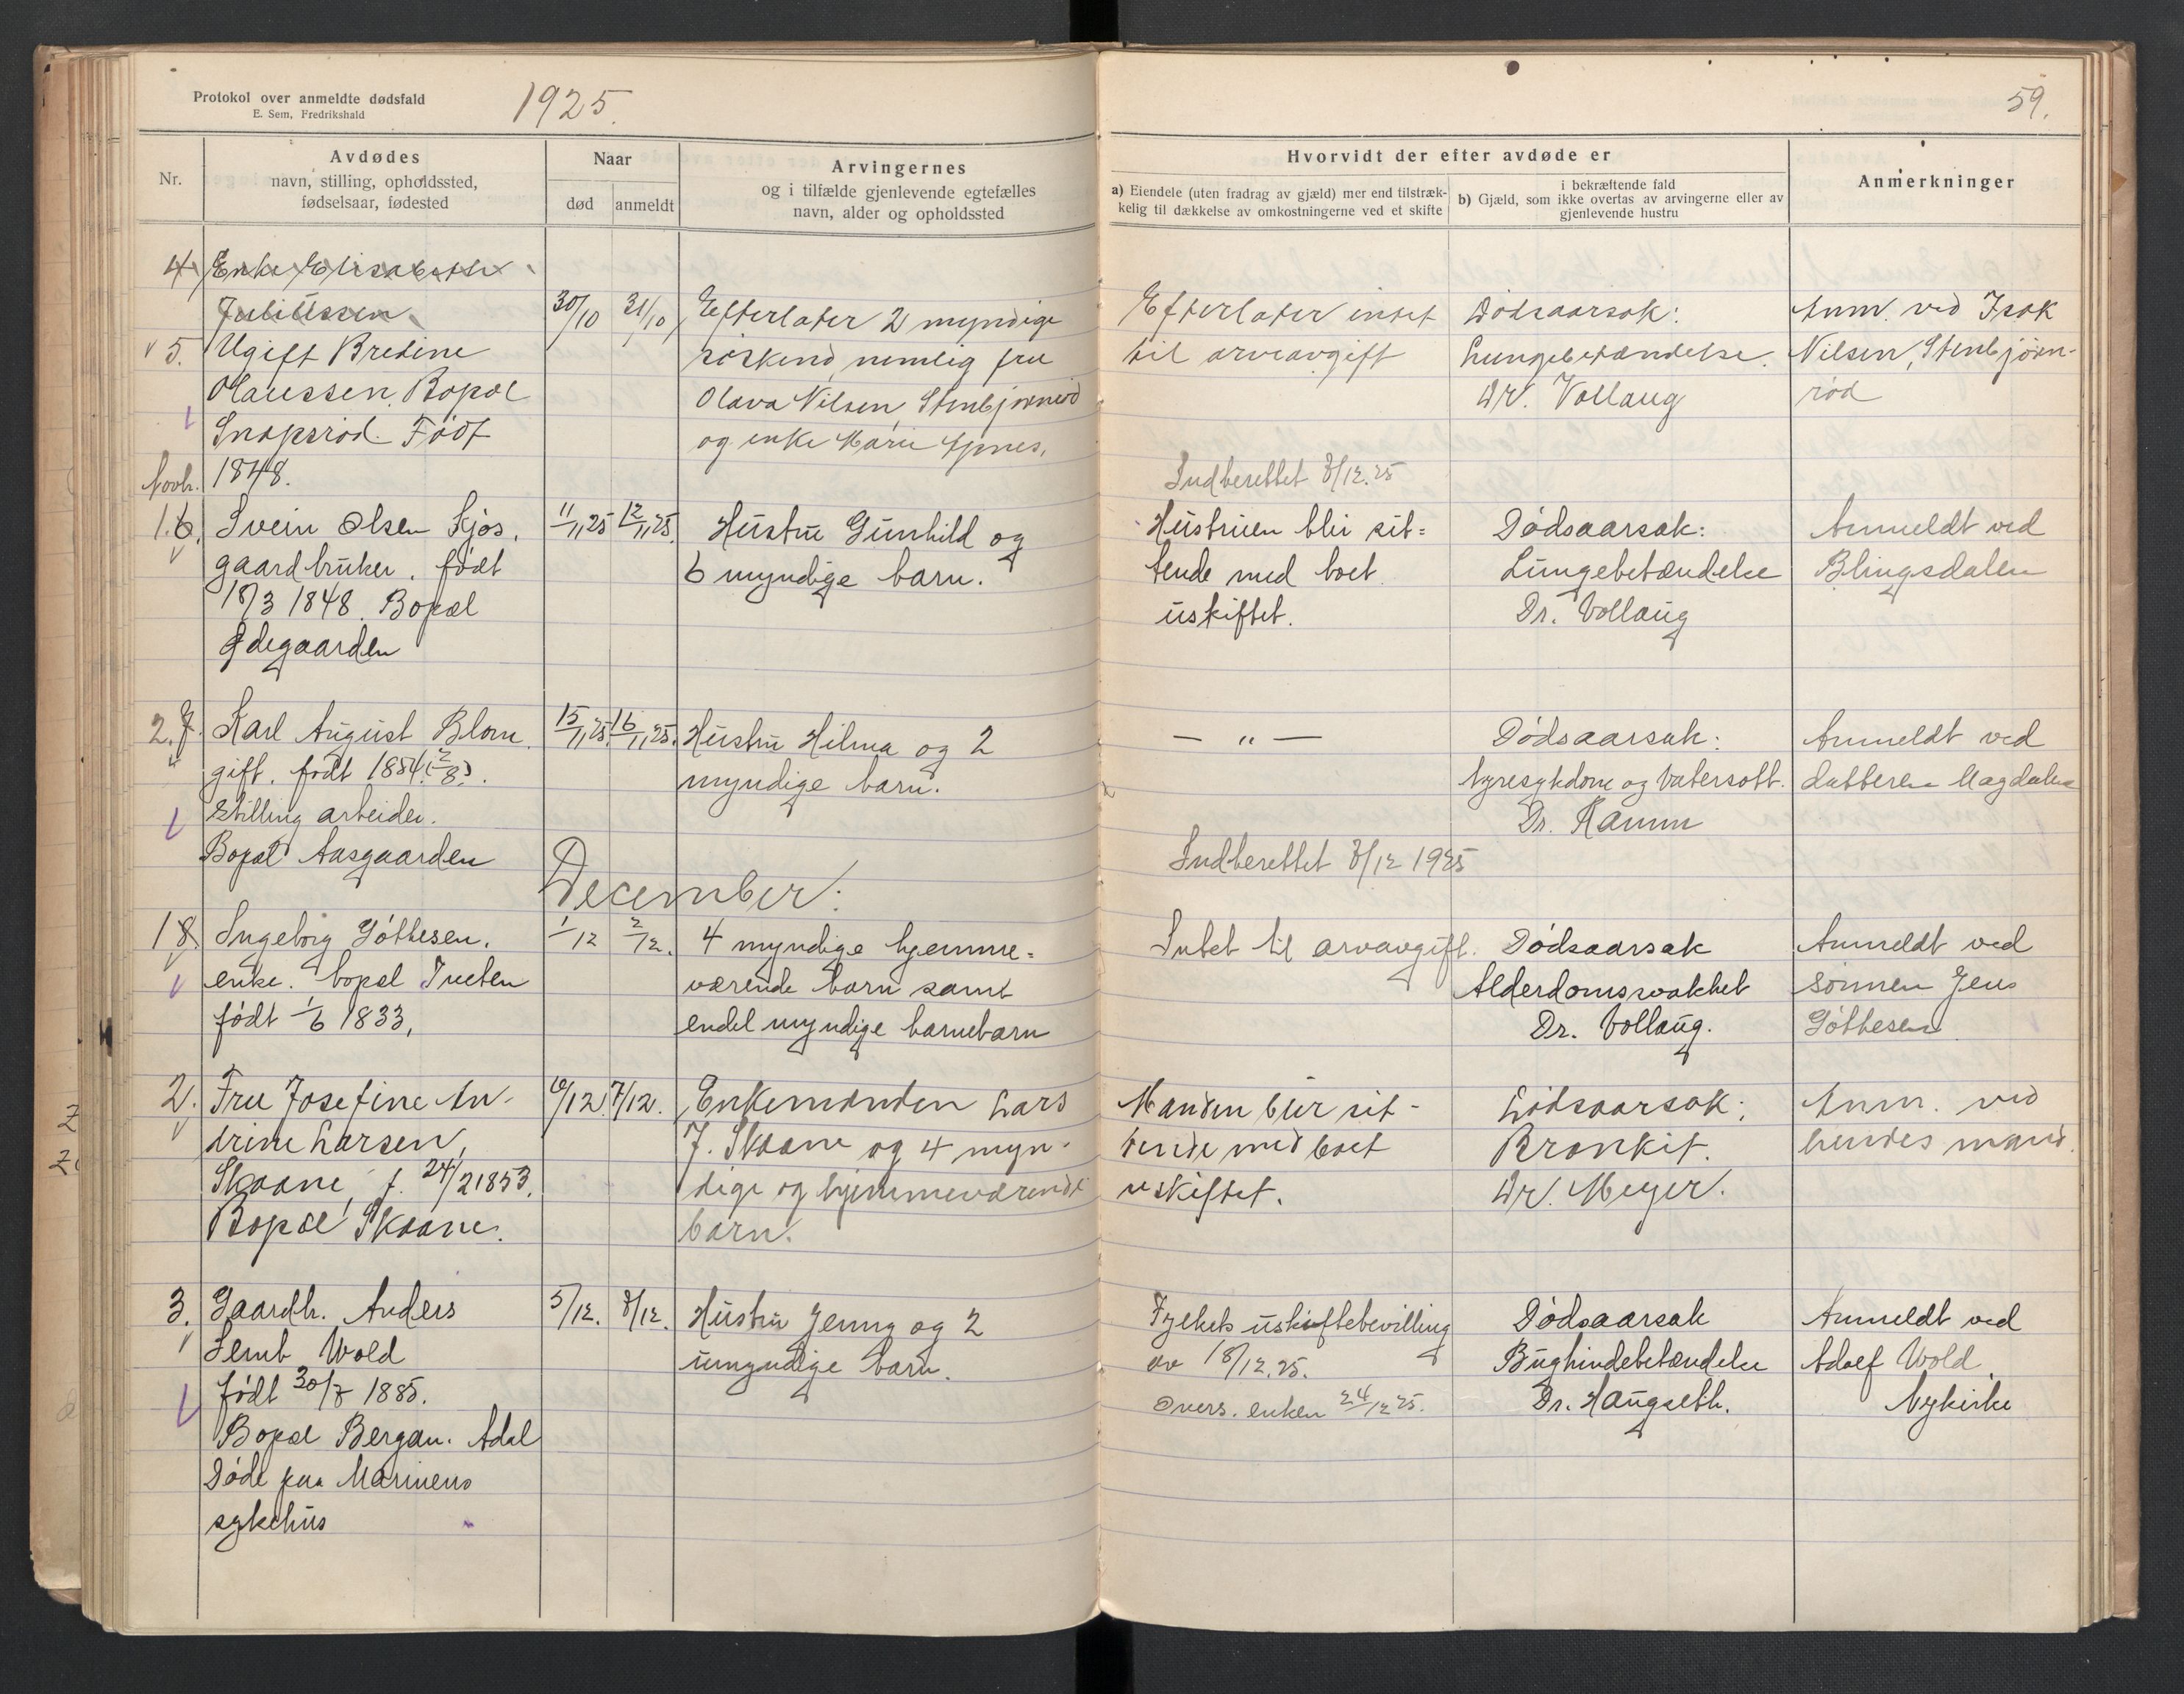 Protokol over anmeldte dødsfald
E. Sem, Fredrikshald
1925.
Nr.
Avdødes
navn, stilling, opholdssted,
fødselsaar, fødested
Naar
død
anmeldt
Arvingernes
og i tilfælde gjenlevende egtefælles
navn, alder og opholdssted
4 Enke Elisabeth
Juliussen
30/10 31/10
5. Ugift Bredine
Olaussen. Bopæl
Snapsrød. Født
1848.
Efterlater 2 myndige
søskend, nemlig fru
Olava Nilsen, Stenbjørnrød
og enke Marie
Novb.
1.6. Svein Olsen Kjos,
gaardbruker. født
18/3 1848. Bopæl
Ødegaarden
11/11,25 12/11,25.
Hustru Gunhild og
6 myndige barn.
2.7. Karl August Blom.
gift. født 1854 (2/8).
Stilling arbeider.
Bopæl Aasgaarden
15/11,25. 16/11,25.
Hustru Hilma og 2
myndige barn.
December.
1 8. Ingeborg Gøthesen.
enke. bopæl Tveten
født 1/6 1833,
1/12 2/12.
4 myndige hjemme=
værende barn samt
endel myndige barnebarn
2. Fru Josefine An-
drine Larsen,
Skaane, f. 24/2 1853.
Bopæl Skaane.
6/12. 7/12.
Enkemanden Lars
J. Skaane og 4 myn-
dige og hjemmeværende
barn.
3. Gaardb. Anders
Semb Wold
født 30/8 1885.
Bopæl Bergan. Adal
Døde paa Marinens
sykehus
5/12. 8/12.
Hustru Jenny og 2
umyndige barn.
59.
Hvorvidt der efter avdøde er
a) Eiendele (uten fradrag av gjæld) mer end tilstræk-
kelig til dækkelse av omkostningerne ved et skifte
i bekræftende fald
b) Gjæld, som ikke overtas av arvingerne eller av
gjenlevende hustru
Anmerkninger
Efterlater intet
til arveavgift
Dødsaarsak:
Lungebetændelse.
Dr. Vollaug
Anm. ved Isak
Nilsen, Stenbjørn-
rød
Indberettet 8/12.25
Hustruen blir sit=
tende med boet
uskiftet.
Dødsaarsak:
Lungebetændelse
Dr. Vollaug
Anmeldt ved
Blingsdalen
— „ —
Dødsaarsak:
Nyresykdom og Vatersott.
Dr. Hamm
Anmeldt ved
datteren Magdalena
Indberettet 8/12 1925
Intet til arvavgift.
Dødsaarsak
Alderdomssvakhet
Dr. Vollaug.
Anmeldt ved
sønnen Jens
Gøthesen
Manden blir sit-
tende med boet
uskiftet.
Dødsaarsak:
Bronkit.
Dr. Meyer.
Anm. ved
hendes mand.
Fylkets uskiftebevilling
av 18/12.25.
Overs. enken 24/12 25.
Dødsaarsak
Bughindebetændelse
Dr. Haugseth.
Anmeldt ved
Adolf Wold
Nykirke